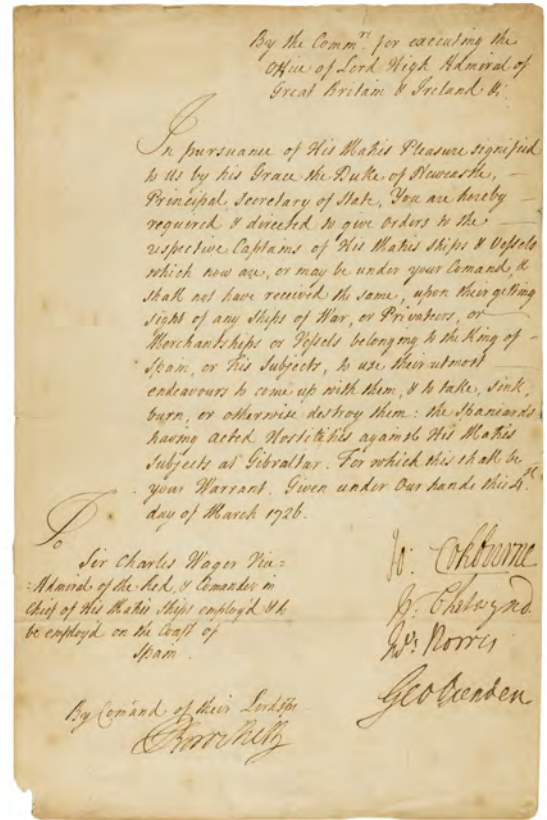 By the Commrs for executing the
Office of Lord High Admiral of
Great Britain & Ireland &c
In pursuance of His Matis Pleasure signified
to Us by his Grace the Duke of Newcastle,
Principal Secretary of State, You are hereby
required & directed to give orders to the
respective Captains of His Matis ships & Vessels
which now are, or may be under your Comand, &
shall not have received the same, upon their getting
sight of any Ships of War, or Privateers, or
Merchantships or Vessels belonging to the King of
Spain, or his Subjects, to use their utmost
endeavours to come up with them, & to take, sink,
burn, or otherwise destroy them: the Spaniards
having acted Hostilities against His Matis
Subjects at Gibraltar. For which this shall be
your Warrant. Given under Our hands this
day of March 1726.
To
Sir Charles Wager Vice=
=Admiral of the Red, & Comander in
Chief of His Matis Ships employd & to
be employd on the Coast of
Spain
Jo: Cokburne
Chetwynd
Jno: Norris
Geo Oxenden
By Comand of their Lordsps